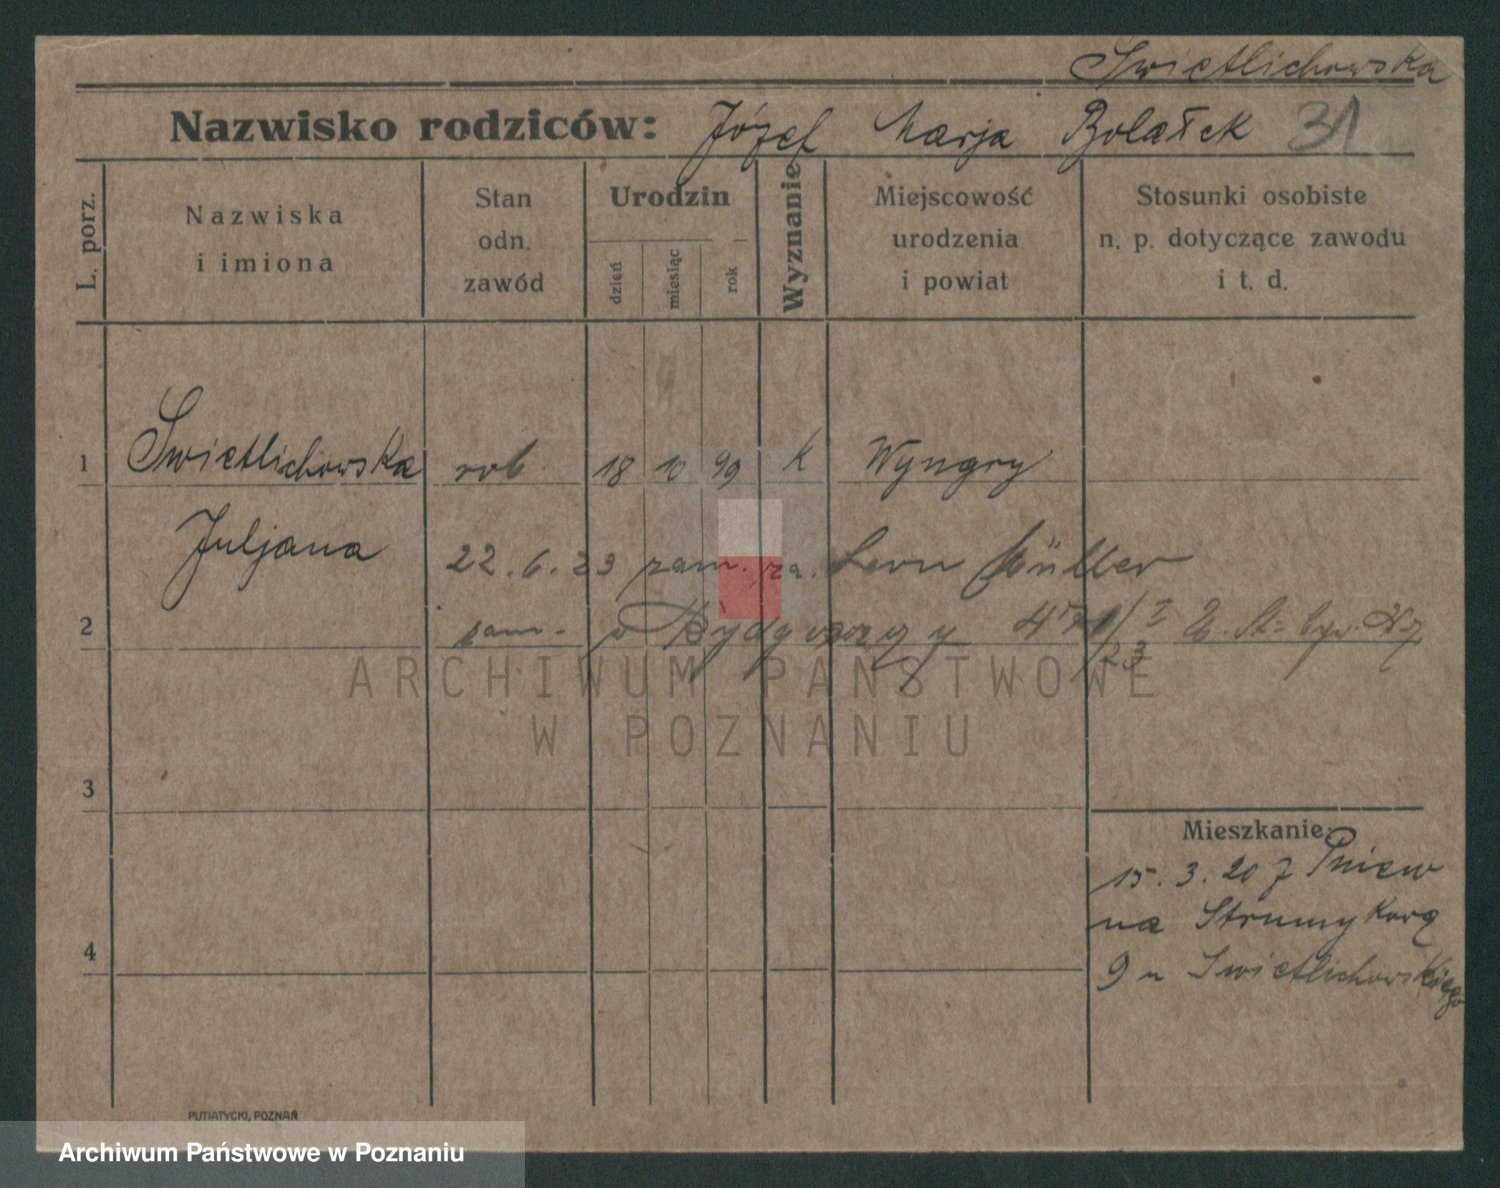 Swietlichowska
Nazwisko rodziców: Józef Marja Bolałek 31
L. porz.
Nazwiska
i imiona
Stan
odn.
zawód
Urodzin
dzień
miesiąc
rok
Wyznanie
Miejscowość
urodzenia
i powiat
Stosunki osobiste
n. p. dotyczące zawodu
i t. d.
1 Swietlichowska rob 18 10 99 k Wyngry
Juljana
22.6.23 zam. za. Leon Müller
2 zam- w Bydgoszczy
ARCHIWUM PAŃSTWOWE
W POZNANIU
3
Mieszkanie:
15.3.20 z Pniew
na Strumykową
4
9 u Swietlichowskiego
PUTIATYCKI, POZNAŃ
Archiwum Państwowe w Poznaniu